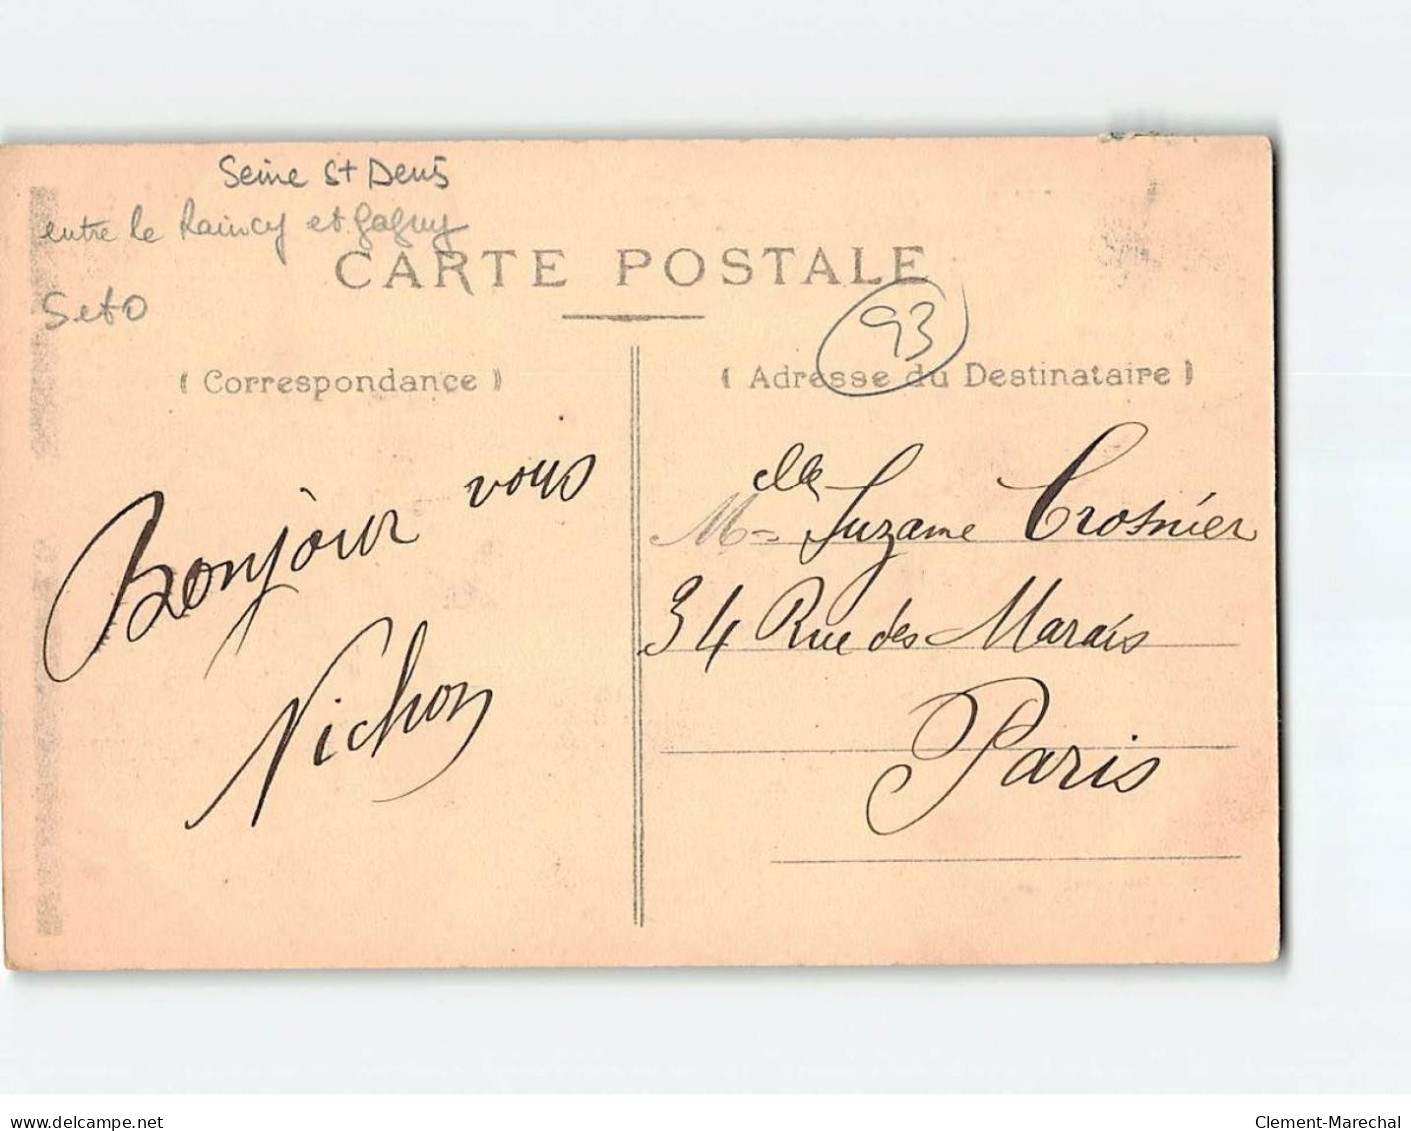 Seine St Denis
entre le Raincy et Gagny
CARTE POSTALE
S et O
93
( Correspondance )
( Adresse du Destinataire )
Bonjour vous
Nichon
Mlle Suzanne Crosnier
34 Rue des Marais
Paris
www.delcampe.net
Clement-Marechal